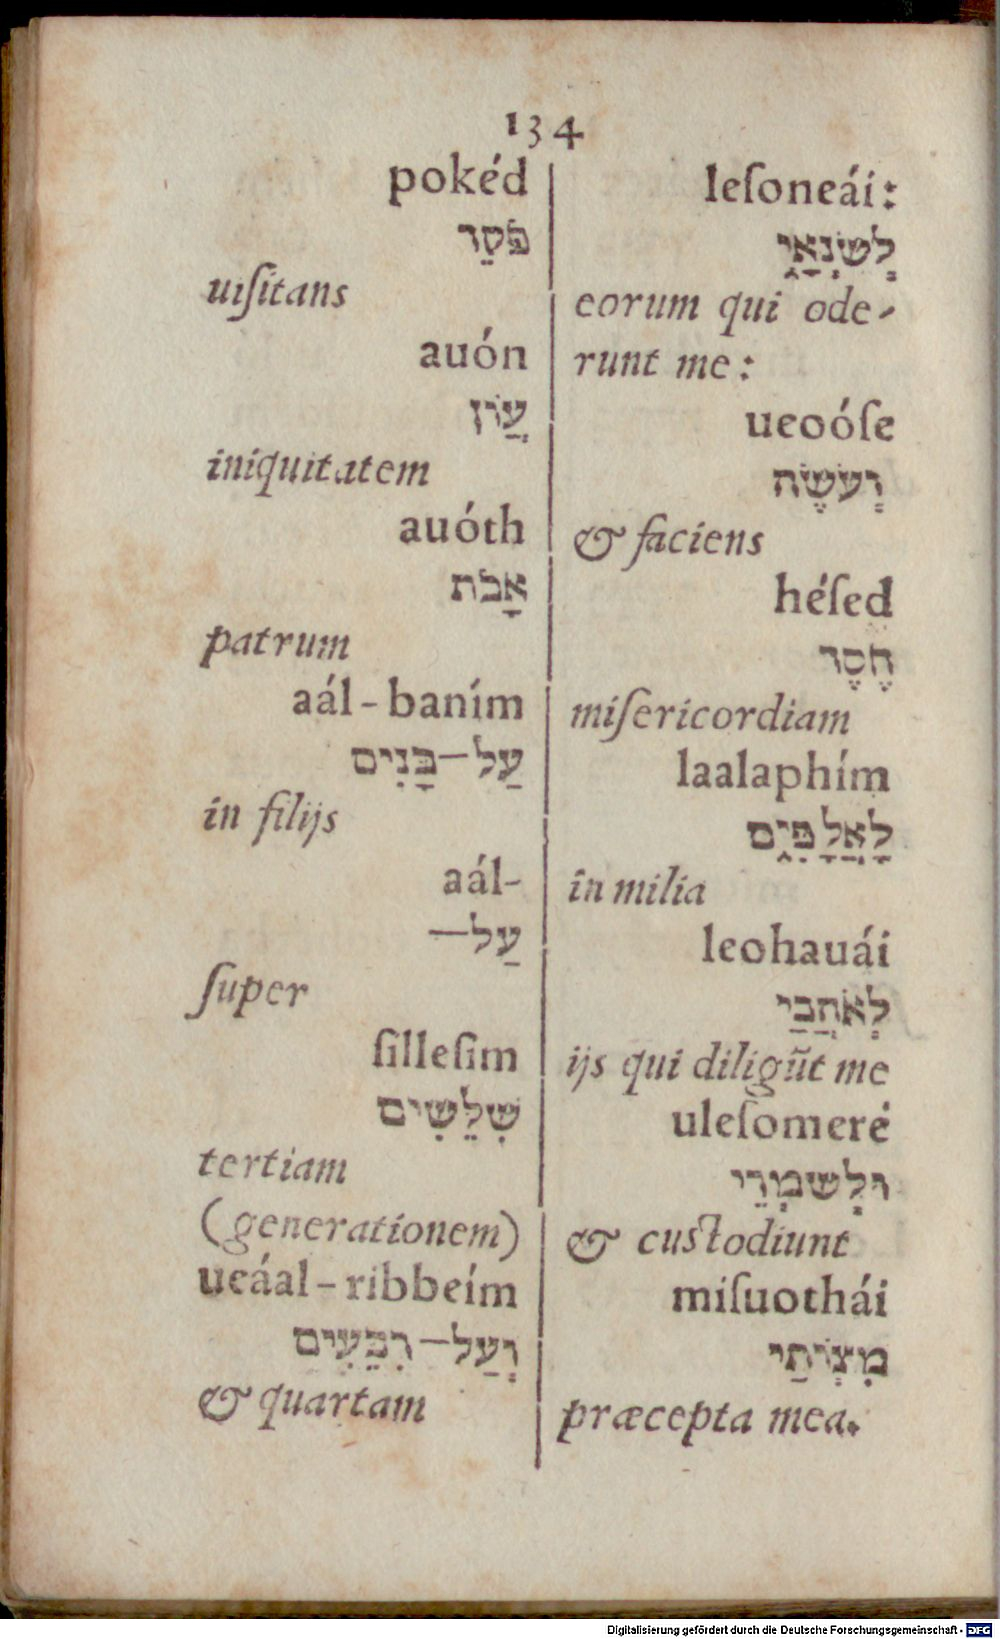 134
pokéd
פֹּקֵד
uiſitans
auón
עֲוֹן
iniquitatem
auóth
אָבֹת
patrum
aál-baním
עַל-בָּנִים
in filijs
aál-
עַל-
ſuper
ſilleſim
שִׁלֵּשִׁים
tertiam
(generationem)
ueáal-ribbeím
וְעַל-רִבֵּעִים
& quartam
leſoneái:
לְשֹׂנְאָי
eorum qui ode-
runt me:
ueoóſe
וְעֹשֶׂה
& faciens
héſed
חֶסֶד
miſericordiam
laalaphím
לַאֲלָפִּים
in milia
leohauái
לְאֹהֲבַי
ijs qui diligũt me
uleſomeré
וּלְשֹׁמְרֵי
& custodiunt
miſuothái
מִצְוֹתַי
præcepta mea.
Digitalisierung gefördert durch die Deutsche Forschungsgemeinschaft - DFG